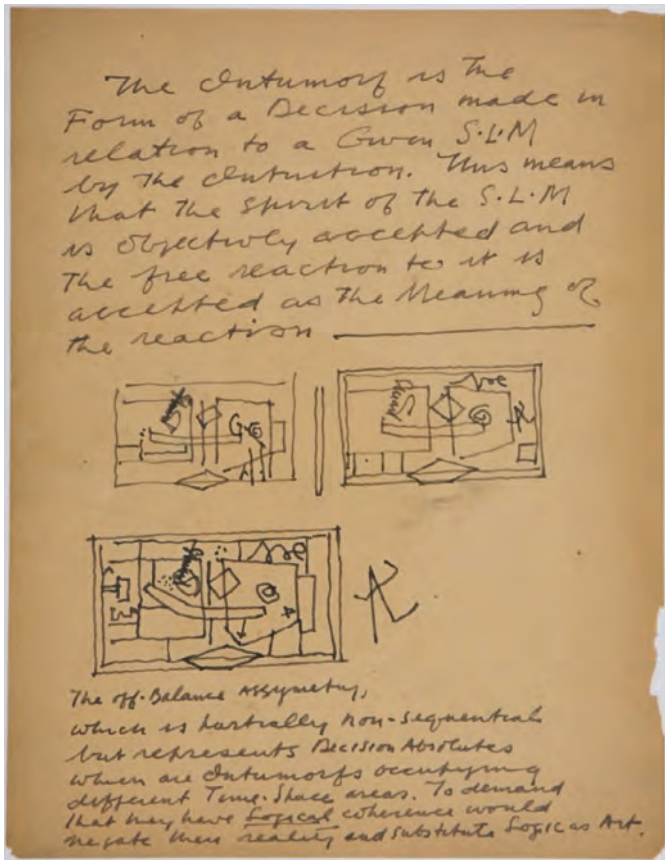 The Intumorf is The
Form of a Decision made in
relation to a Given S.L.M
by The Intuition. This means
that The Spirit of the S.L.M
is objectivly accepted and
The free reaction to it is
accepted as The Meaning of
the reaction
The off-Balance Assymetry,
which is partially non-sequential
but represents Decision Absolutes
which are Intumorfs occupying
different Time-Space areas. To demand
that they have Logical coherence would
negate their reality and substitute Logic as Art.